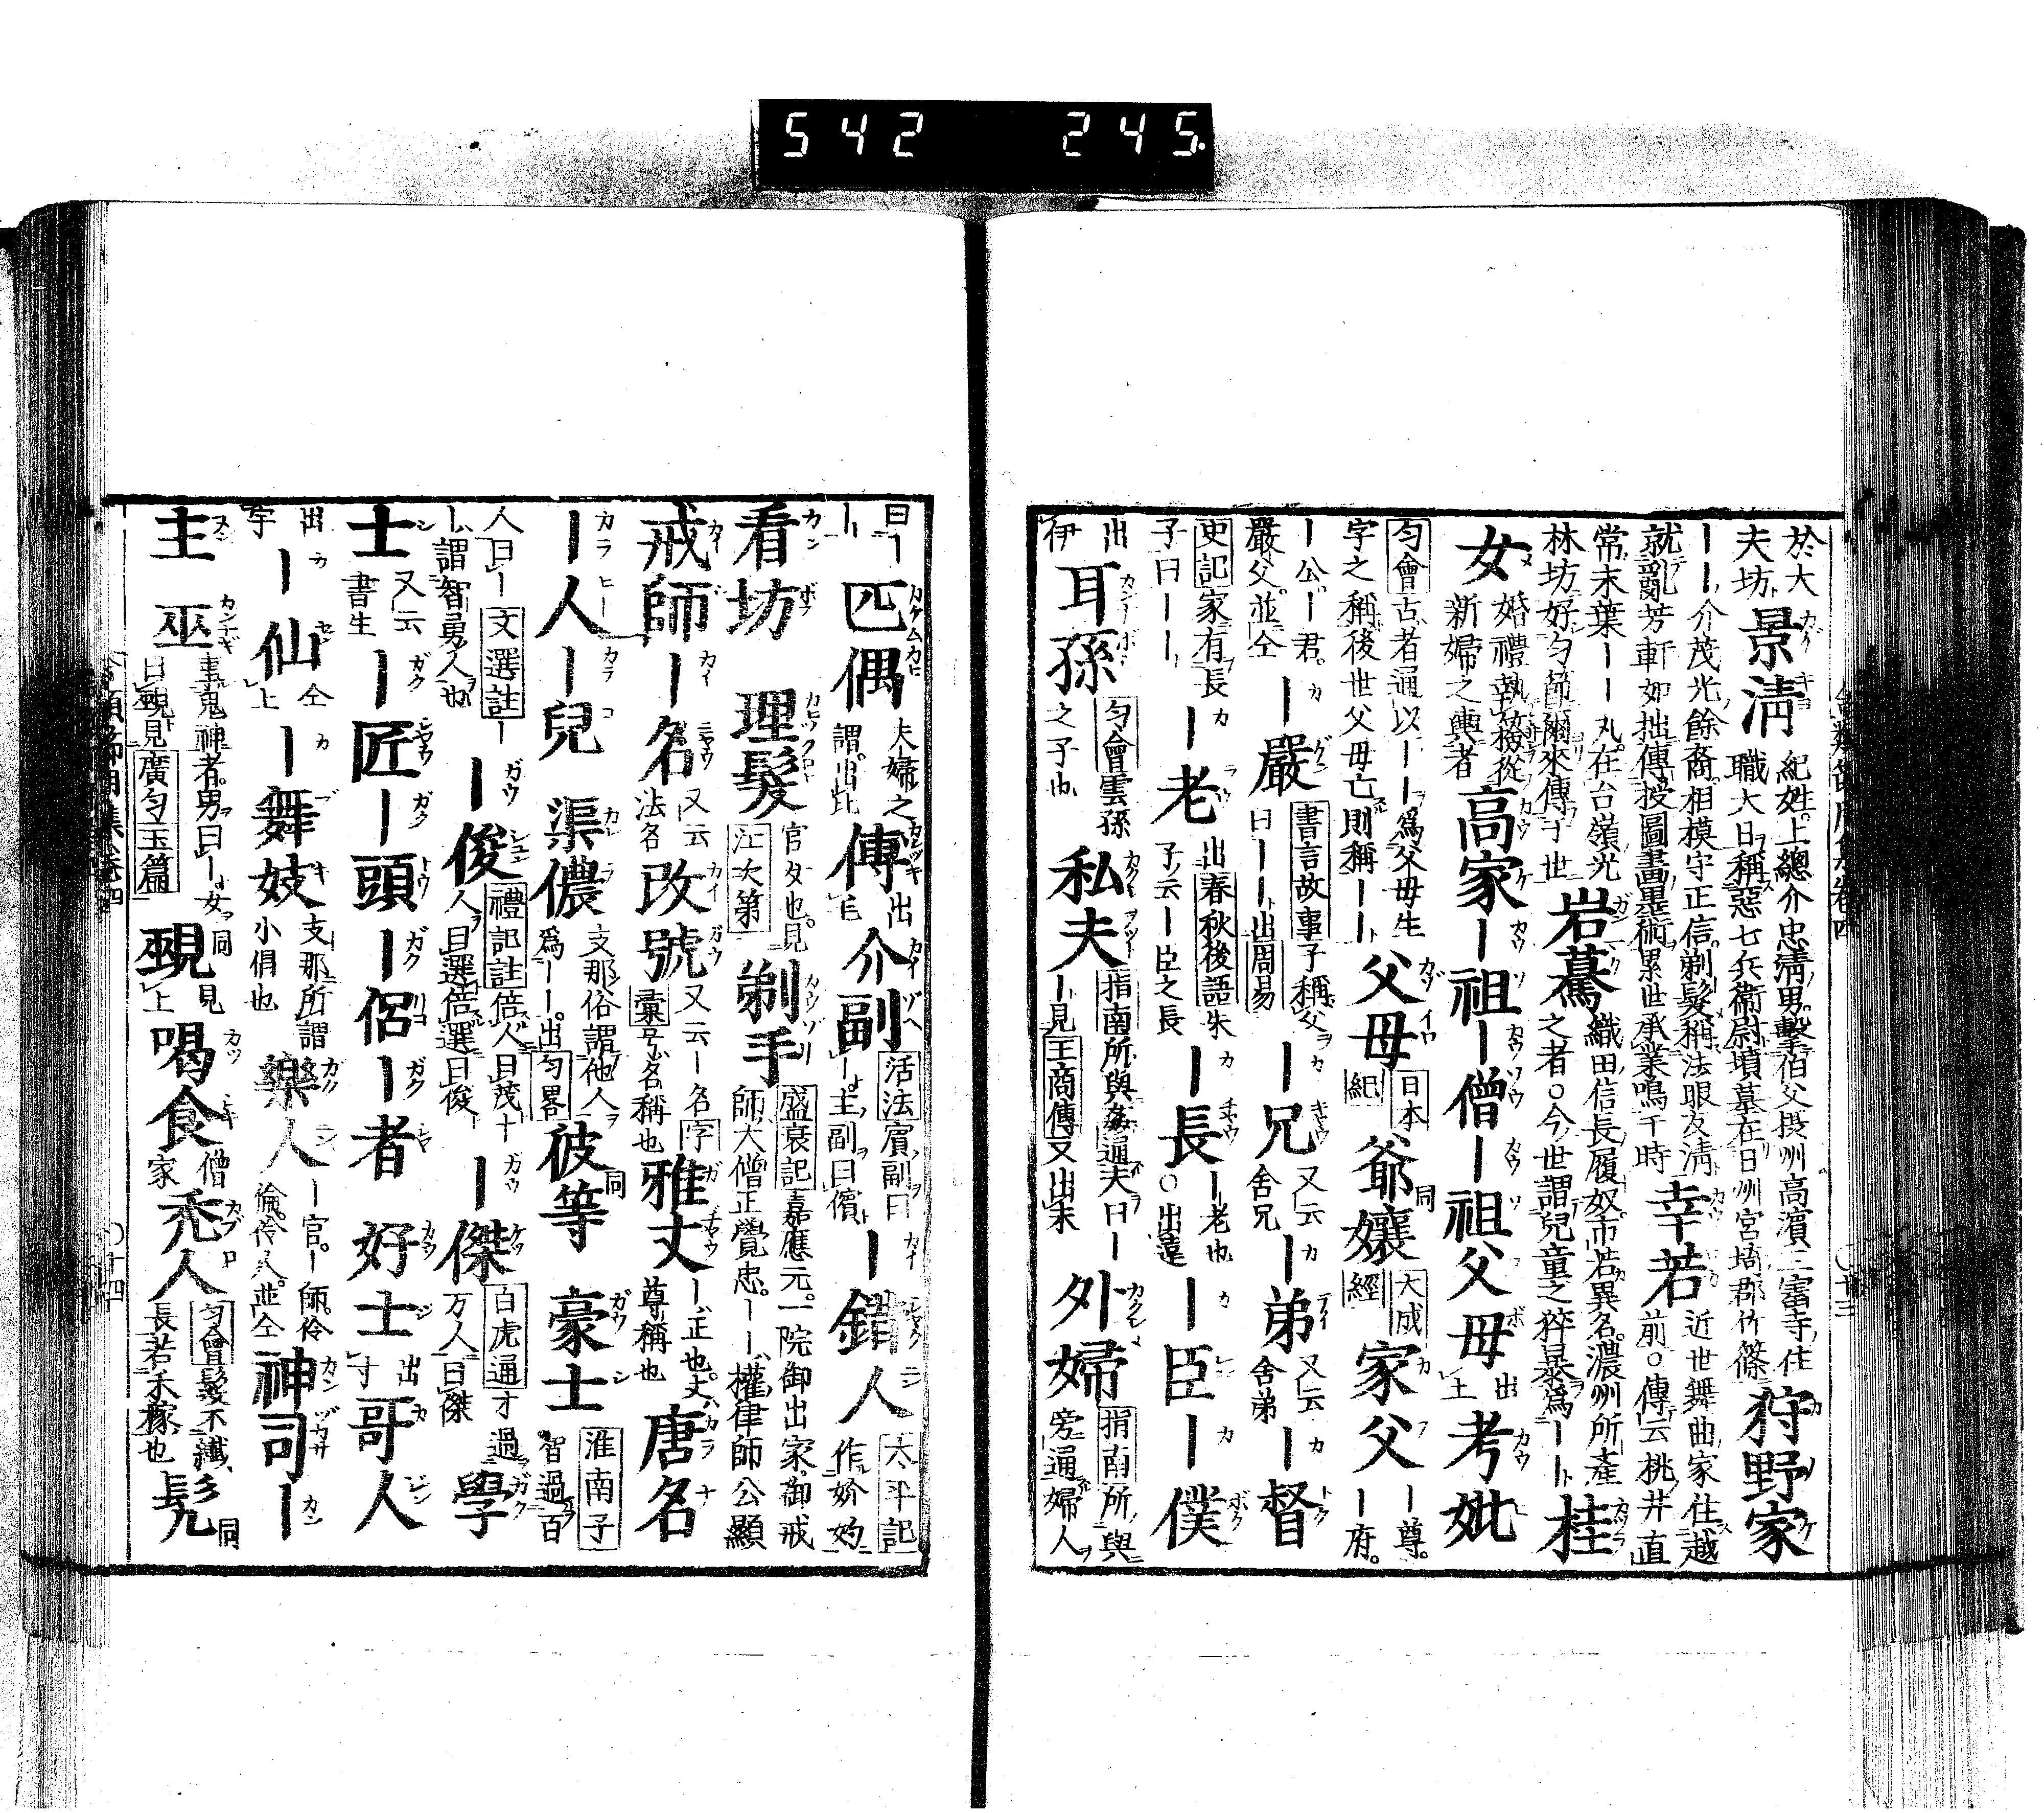 542 245.
於大夫坊景清紀姓上總介忠清男擊伯父授州高濱三寳寺住職大日稱惡七兵衛尉墳墓在日州宮埼郡竹篠狩野家
ーー介茂光餘裔相模守正信剃髮稱法眼友清就亂芳軒如拙傳授圖畵墨術累世承業鳴于時幸若近世舞曲家住越前○傳云桃井直
常末葉ーー丸在台嶺光林坊好匀節爾來傳于世岩驀織田信長履奴市若異名濃州所產之者○今世謂兒童之猝暴爲ーー桂
女婚禮執從新婦之輿者高家ー祖ー僧ー祖父母出上考妣
匀會古者通以ーー爲父母生字之稱後世父母亡則稱ーー父母日本紀爺孃同大成經家父ー尊ー府
ー公ー君嚴父並仝ー嚴書言故事子稱父曰ーー出周易ー兄又云舍兄ー弟又云舍弟ー督
史記家有長子曰ーーー老出春秋後語朱子云ー臣之長ー長ー老也○出遠ー臣ー僕
出伊耳孫匀會雲孫之子也私夫指南所與姦通夫曰ーー見王商傳又出未外婦指南所與旁通婦人
曰ーー匹偶夫婦之謂出比傅出毛介副活法賓副曰ー主副曰儐ー錯人太平記作妎妁
看坊理髮官名也見江次第剃手盛衰記嘉應元一院御出家御戒師大僧正覺忠ーー權律師公顯
戒師ー名又云法名改號又云ー名字彙号名稱也雅丈ー正也丈尊稱也唐名
ー人ー兒渠儂支那俗謂他人爲ーー出匀畧彼等同豪士淮南子智過百
人曰ー文選註ーー謂智勇人也ー俊禮記註倍人曰茂十人曰選倍選曰俊ー傑白虎通才過万人曰傑學
士又云書生ー匠ー頭ー侶ー者好士出寸哥人
出字ー仙仝上ー舞妓支那所謂小倡也樂人ー官ー師伶倫伶人並仝神司ー
主巫事鬼神者男曰ー女曰覡見廣匀玉篇覡同見上喝食僧家禿人匀會髮不纖長若禾稼也髡同
十三
十四